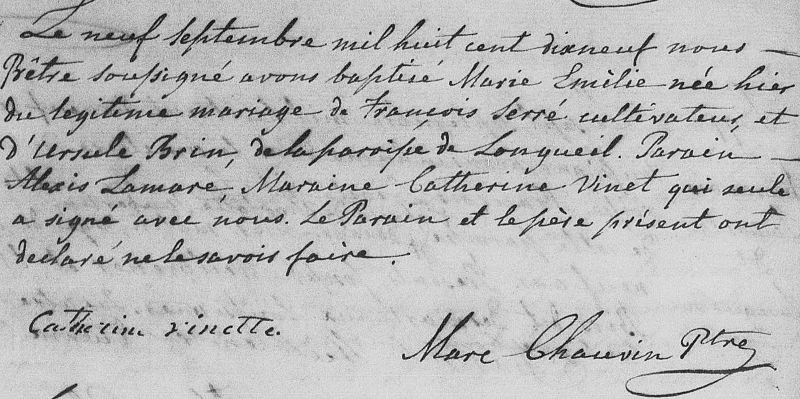 Le neuf septembre mil huit cent dixneuf nous —
Prêtre soussigné avons baptisé Marie Emilie née hier
du legitime mariage de François Serré cultivateur, et
d'Ursule Brin, de la paroisse de Longueil. Parain —
Alexis Lamare, Maraine Catherine Vinet qui seule
a signé avec nous. Le Parain et le père présent ont
declaré ne le savoir faire.
Catherin vinette.
Marc Chauvin Ptre